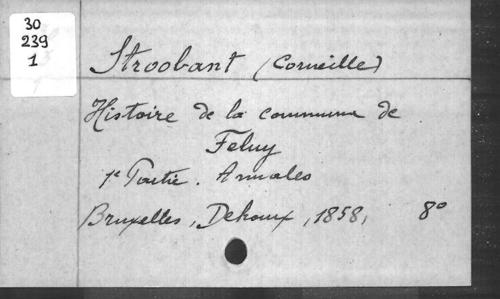 30
239
1
Stroobant (Corneille)
Histoire de la commune de
Feluy
1e Partie. Annales
Bruxelles, Dehoux, 1858, 8º